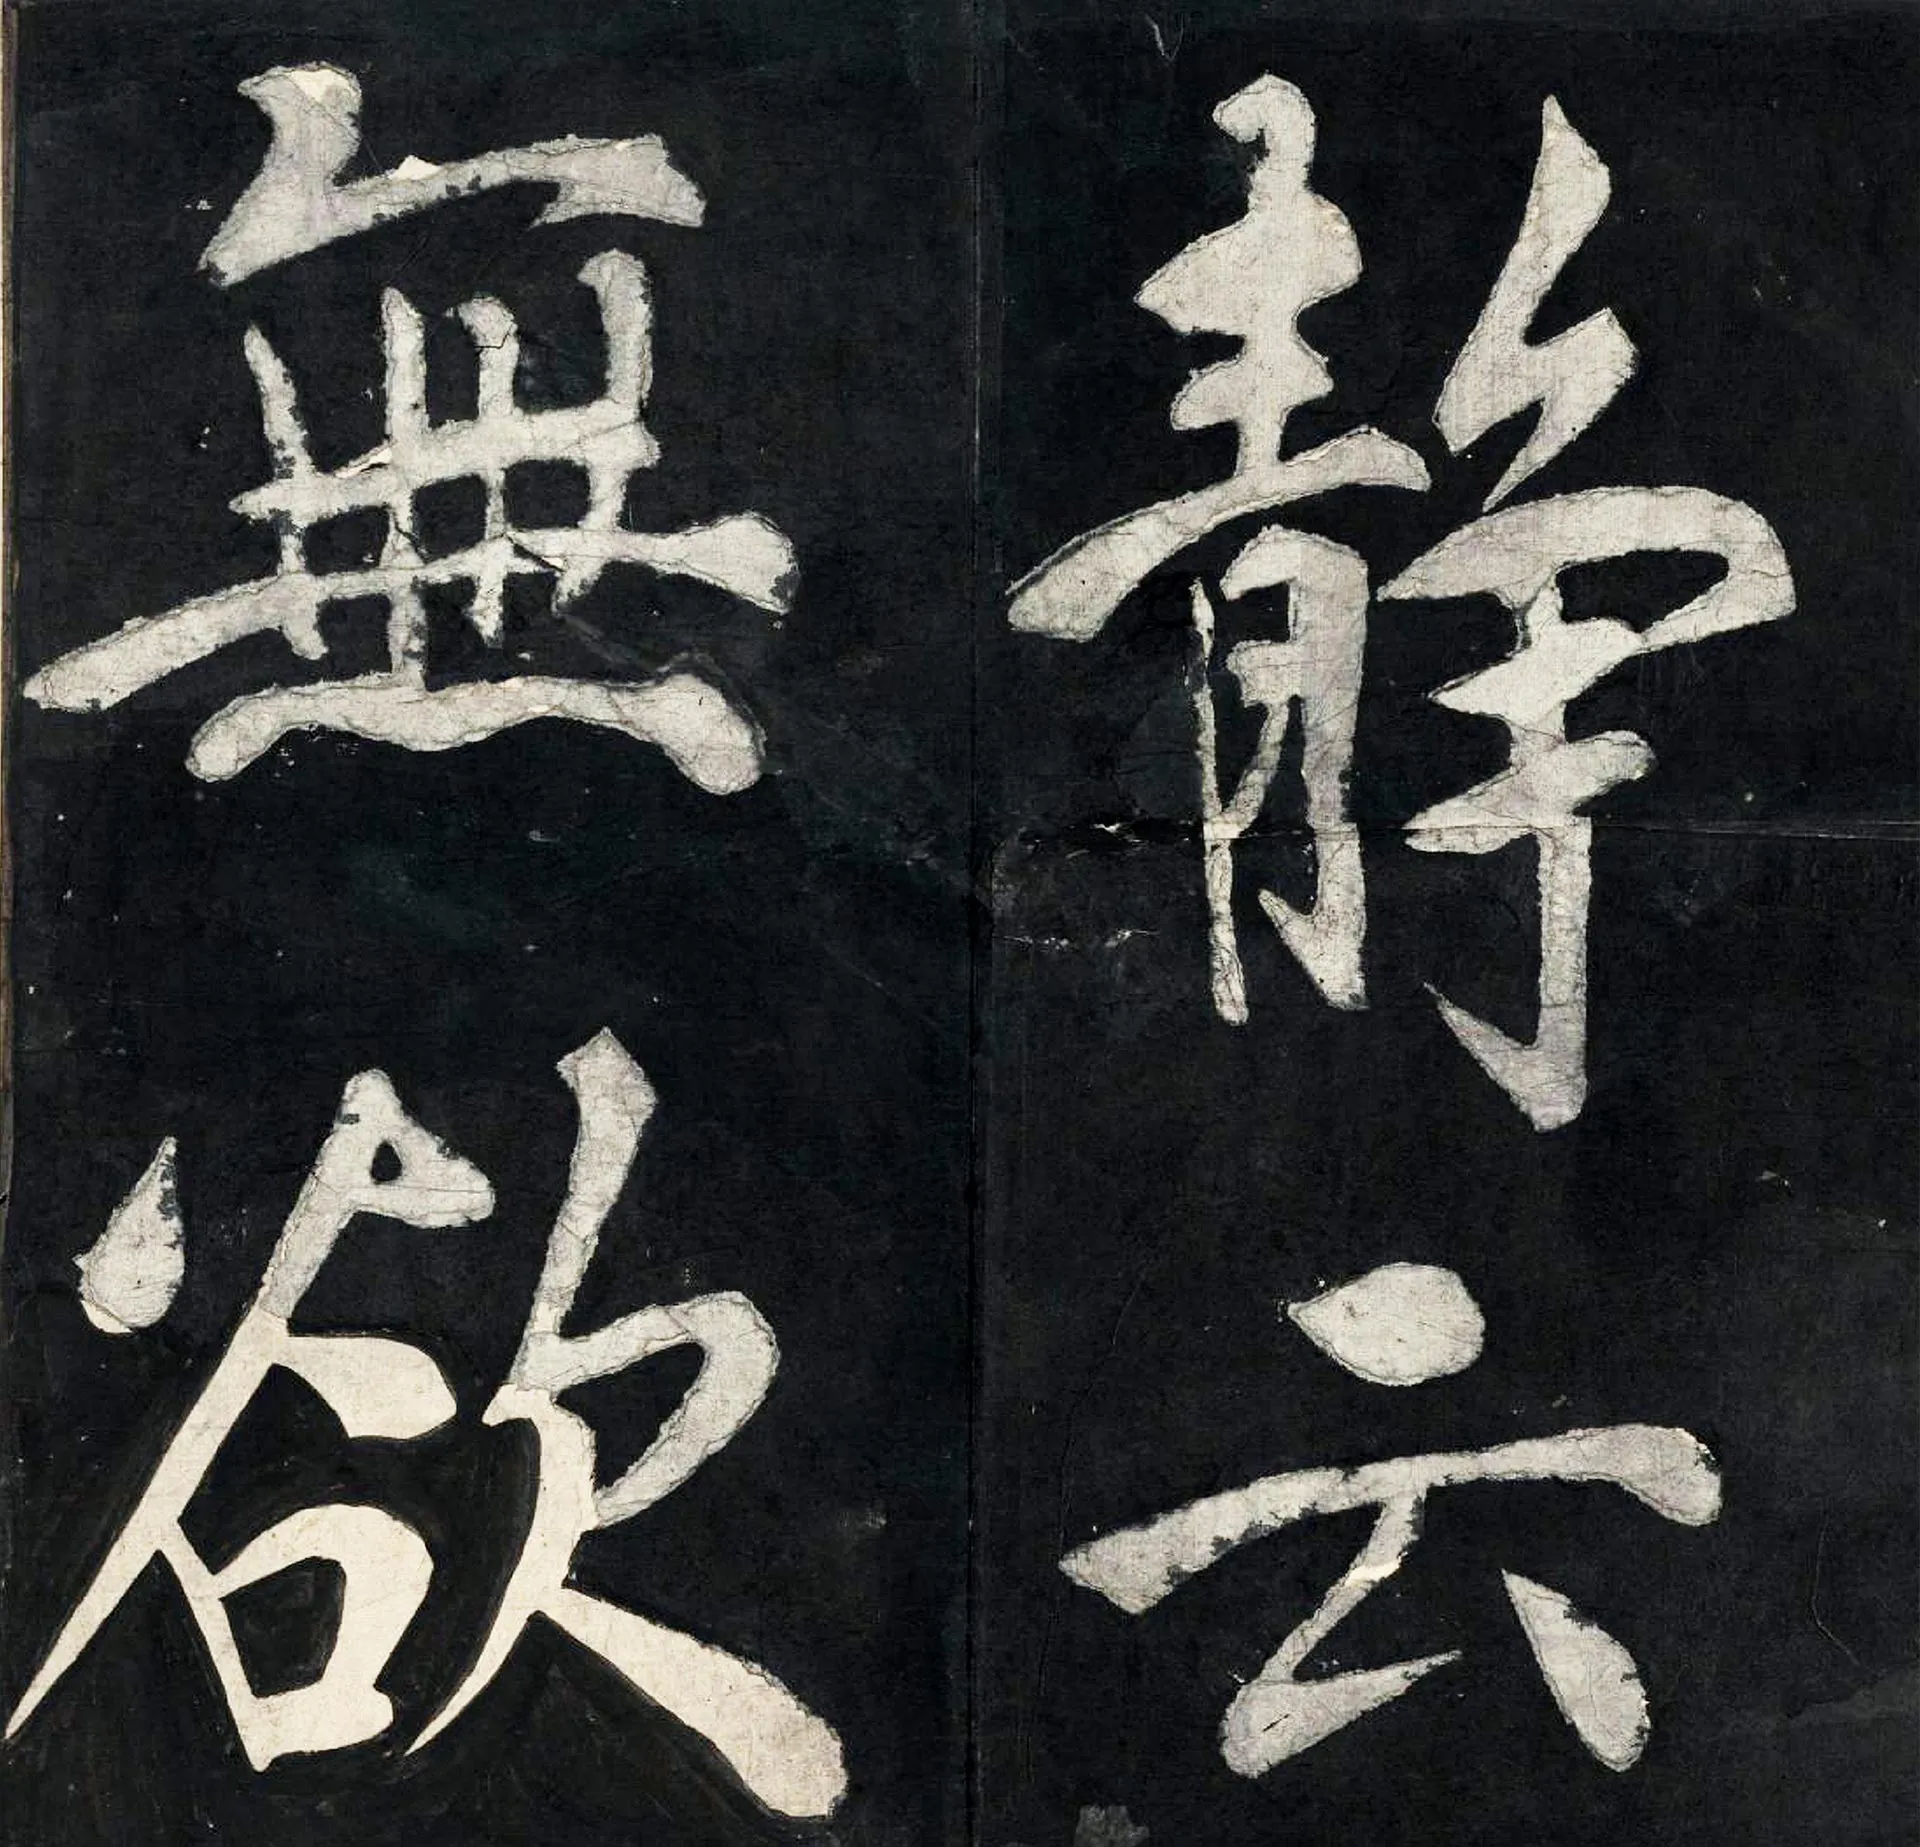 靜云
無欲